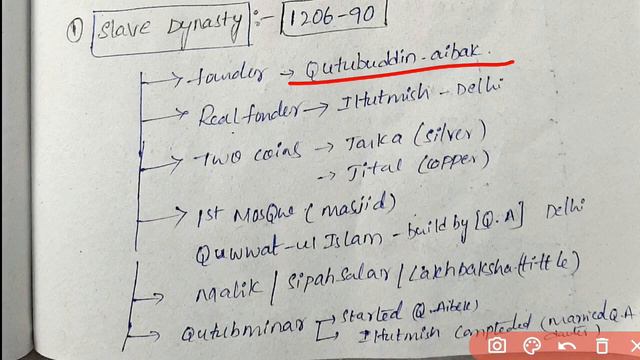 ① Slave Dynasty :- 1206-90
→ founder → Qutubuddin-aibak.
→ Real fonder → Iltutmish - Delhi
→ Two coins → Taka (silver)
→ Jital (copper)
→ 1st Mosque (masjid)
Quwwat-ul Islam - build by [Q.A] Delhi
→ Malik / Sipahsalar / Lakhbaksha (tittle)
→ Qutubminar → Started (Q.Aibek)
→ Iltutmish completed (married Q.A